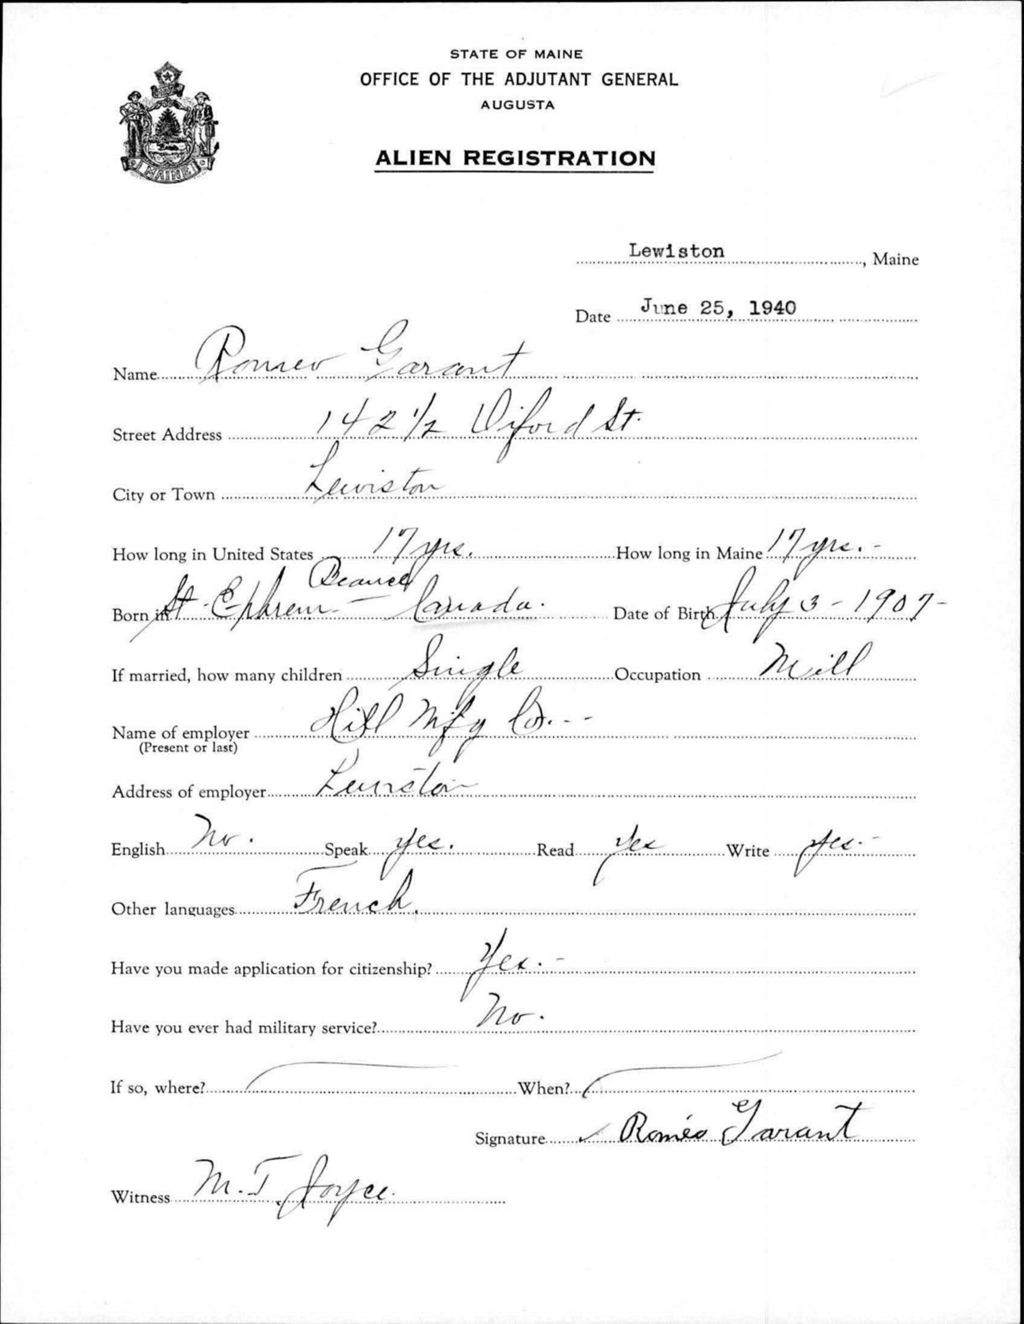 STATE OF MAINE
OFFICE OF THE ADJUTANT GENERAL
AUGUSTA
ALIEN REGISTRATION
MAINE
Lewiston, Maine
Date June 25, 1940
Name Romeo Garant
Street Address 142 1/2 Oxford St.
City or Town Lewiston
How long in United States 17 yrs. How long in Maine 17 yrs. -
Beauce
Born in St. Ephrem - Canada. Date of Birth July 3 - 1907 -
If married, how many children Single Occupation Mill
Name of employer Hill Mfg Co. - -
(Present or last)
Address of employer Lewiston
English No. Speak yes. Read Yes Write yes. -
Other languages French.
Have you made application for citizenship? Yes. -
Have you ever had military service? No.
If so, where? When?
Signature Roméo Garant
Witness M. T. Joyce.